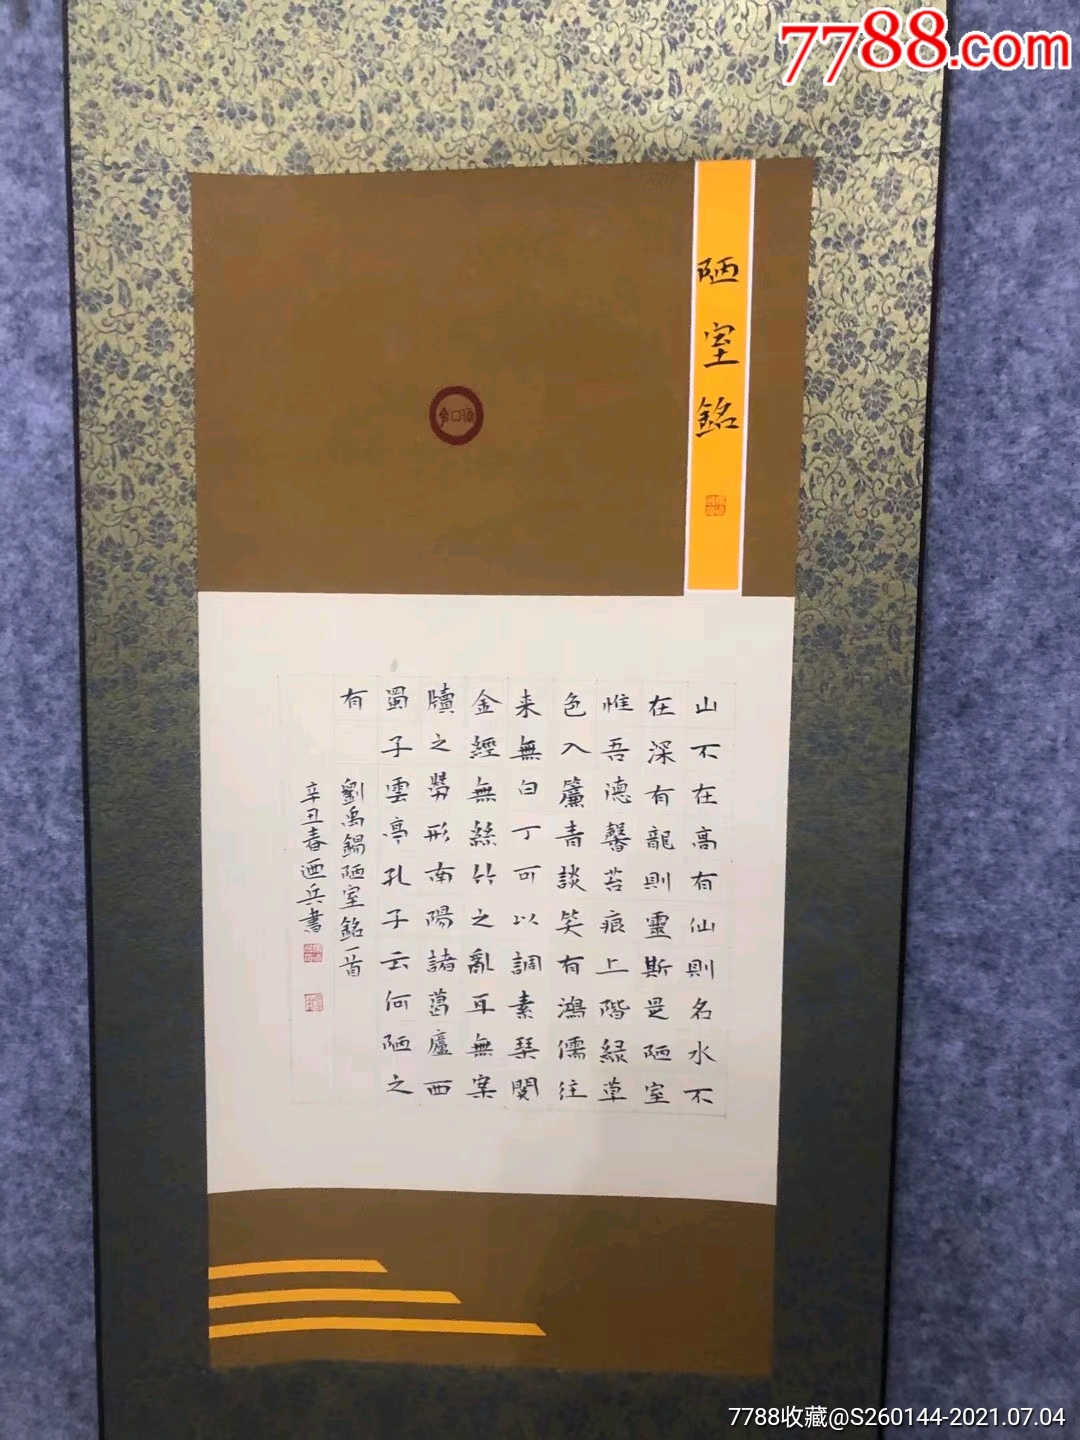 7788.com
陋室銘
山不在高有仙則名水不
在深有龍則靈斯是陋室
惟吾德馨苔痕上階綠草
色入簾青談笑有鴻儒往
来無白丁可以調素琴閱
金經無絲竹之亂耳無案
牘之勞形南陽諸葛廬西
蜀子雲亭孔子云何陋之
有
劉禹錫陋室銘一首
辛丑春迺兵書
7788收藏@S260144-2021.07.04